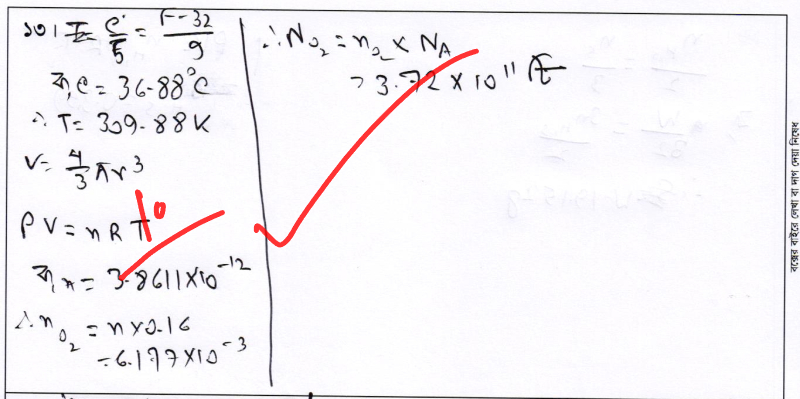 ১০। C/5 = F-32/9
বা, C = 36.88°C
∴ T = 309.88 K
V = 4/3 πr³
PV = nRT
10
বা, n = 3.8611×10⁻¹²
∴ n_O₂ = n×0.16
= 6.177×10⁻³
∴ N_O₂ = n_O₂ × N_A
= 3.72 × 10¹¹ টি
বক্সের বাইরে লেখা বা দাগ দেয়া নিষেধ